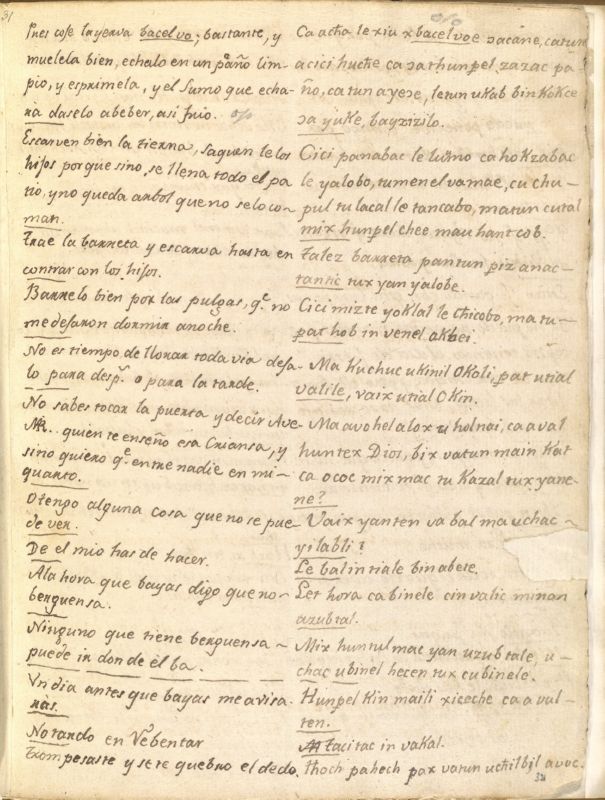 31
Pues cose la yerva bacelvo; bastante, y
muelela bien, echalo en un paño lim-
pio, y esprimela, y el sumo que echa-
ra daselo a beber, asi frio.
Escarven bien la tierra, saquen le los
hijos porque sino, se llena todo el pa
tio, y no queda arbol que no se lo co-
man.
Trae la barreta y escarva hasta en
contrar con los hijos.
Barrelo bien por las pulgas, q.e no
me dejaron dormir anoche.
No es tiempo de llorar toda via deja-
lo para desp.s o para la tarde.
No sabes tocar la puerta y decir Ave
MR.. quien te enseño esa criansa, y
sino quiero q.e entre nadie en mi
quarto.
O tengo alguna cosa que no se pue-
de ver.
De el mio has de hacer.
A la hora que bayas digo que no-
berguensa.
Ninguno que tiene berguensa-
puede ir donde el ba.
Vn dia antes que bayas me avisa.
ras.
No tardo en Rebentar
Trompesaste y se te quebro el dedo.
Ca acħa le xiu x bacelvoe ɔacane, catun
a cici hucħe ca ɔat hunpel zazac pa-
ño, ca tun a yeɔe, letun ukab bin kokce
ɔa yuke, bay xizilo.
Cici panabac le luumo ca hokzabac
le yalobo, tumenel va mae, cu chu-
pul tulacal le tancabo, matun cutal
mix hunpel chee mau hantcob.
Talez barreta pantun piz anac-
tantic tux yan yalobe.
Cici mizte yoklal le cħicobo, ma tu-
pat hob in venel akbei.
Ma kuchuc ukinil okoli, pat utial
valile, vaix utial okin.
Ma avohel a lox u holnai, ca aval
huntex Dios, bix vatun main kat
ca ococ mix mac tu kazal tux yanen-
ne?
Vaix yanten va bal ma uchac
yilabli?
Le balintiale bin abete.
Let hora ca binele cin valic minan
azubtal.
Mix huntulmac yan uzubtale, u-
chac ubinel hecen tux cubinele.
Hunpel kin maili xiceche ca a val-
ten.
Ma tacitac in vakal.
tħoch pahech pax vatun ucħilbil avoc.